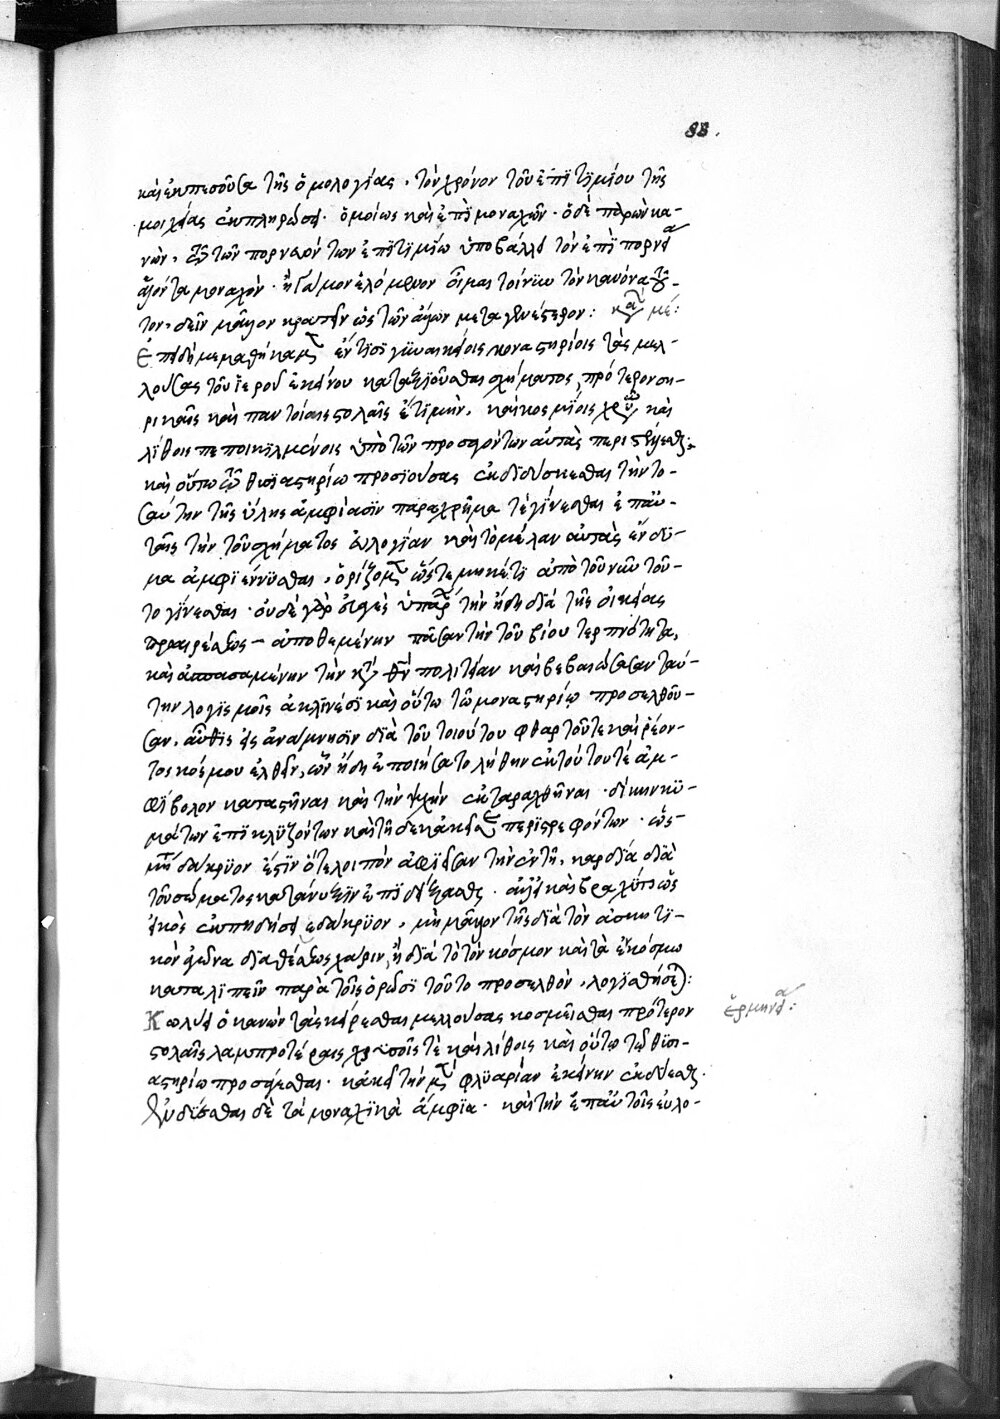 88.
καὶ ἐκπεσοῦσα τῆς ὁμολογίας, τὸν χρόνον τοῦ ἐπϊτϊμίου τῆς
μοιχείας ἐκπληρώσει. ὁμοίως καὶ ἐπὶ μοναχῶν. ὁ δὲ παρὼν κα-
νὼν, τῶν πορνευόντων ἐπϊτϊμίω ὑποβάλλει τὸν ἐπὶ πορνεία
ἁλόντα μοναχὸν. ἢ γάμον ἑλόμενον οἶμαι τοίνυν τὸν κανόνα τοῦ-
τον, δεῖν μᾶλλον κρατεῖν ὡς τῶν ἄλλων μεταγενέστερον: μέ:
Ἐπειδὴ μεμαθήκαμεν ἔν τισι γυναικείοις μοναστηρίοις τὰς μελ-
λούσας τοῦ ἱεροῦ ἐκείνου καταξιοῦσθαι σχήματος, πρότερον ση-
ρικαῖς καὶ παντοίαις στολαῖς ἔτι μὴν, καὶ κοσμίοις χρυσῶ καὶ
λίθοις πεποικϊλμένοις ὑπὸ τῶν προσαγόντων αὐτὰς περιστέλλεσθαι.
καὶ οὕτω τῶ θυσιαστηρίω προσϊούσας ἐκδιδύσκεσθαι τὴν το-
σαύτην τῆς ὕλης ἀμφίασϊν παραχρῆμα τὲ γίνεσθαι ἐπ' αὐ-
ταῖς τὴν τοῦ σχήματος εὐλογίαν καὶ τὸ μέλαν αὐτὰς ἔνδυ-
μα ἀμφιέννυσθαι, ὁρίζομεν ὥστε μηκέτϊ ἀπὸ τοῦ νῦν τοῦ-
το γίνεσθαι. οὐδὲ γὰρ εὐαγὲς ὑπάρχει τὴν ἤδη διὰ τῆς οἰκείας
προαιρέσεως ἀποθεμένην πᾶσαν τὴν τοῦ βίου τερπνότητα,
καὶ ἀσπασαμένην τὴν κατὰ θεὸν πολιτείαν καὶ βεβαιώσασαν ταύ-
την λογισμοῖς ἀκλϊνέσϊ καὶ οὕτω τῶ μοναστηρίω προσελθοῦ-
σαν, αὖθις εἰς ἀνάμνησϊν διὰ τοῦ τοιούτου φθαρτοῦ τε καὶ ῥέον-
τος κόσμου ἐλθεῖν, ὧν ἤδη ἐποιήσατο λήθην ἐκ τούτου τέ ἀμ-
φίβολον καταστῆναι καὶ τὴν ψυχὴν ἐκταραχθῆναι. δίκην κυ-
μάτων ἐπϊκλυζόντων καὶ τῆδε κἀκεῖσε περιστρεφόντων. ὡς
μηδὲ δάκρυον ἔστϊν ὅτε λοιπὸν ἀφιεῖσαν τὴν ἐν τῆ, καρδία διὰ
τοῦ σώματος κατάνυξϊν ἐπιδείξασθαι. ἀλλ' εἰ καὶ βραχύτι ὡς
εἰκὸς ἐκπηδήσει δάκρυον, μὴ μᾶλλον τῆς διὰ τὸν ἀσκητϊ-
κὸν ἀγῶνα διαθέσεως χάριν, ἢ διὰ τὸ τὸν κόσμον καὶ τὰ ἐν κόσμω
καταλιπεῖν παρὰ τοῖς ὁρῶσϊ τοῦτο προσελθὸν, λογισθήσεται:
Κωλύει ὁ κανὼν τὰς κείρεσθαι μελλούσας κοσμεῖσθαι πρότερον ἑρμηνεία:
στολαῖς λαμπροτέραις χρυσοῖς τὲ καὶ λίθοις καὶ οὕτω τῶ θυσι-
αστηρίω προσάγεσθαι. κἀκεῖ τὴν μὲν φλυαρίαν ἐκείνην ἐκδύεσθαι.
ἐνδύεσθαι δὲ τὰ μοναχϊκὰ ἄμφια. καὶ τὴν ἐπ' αὐτοῖς εὐλο-